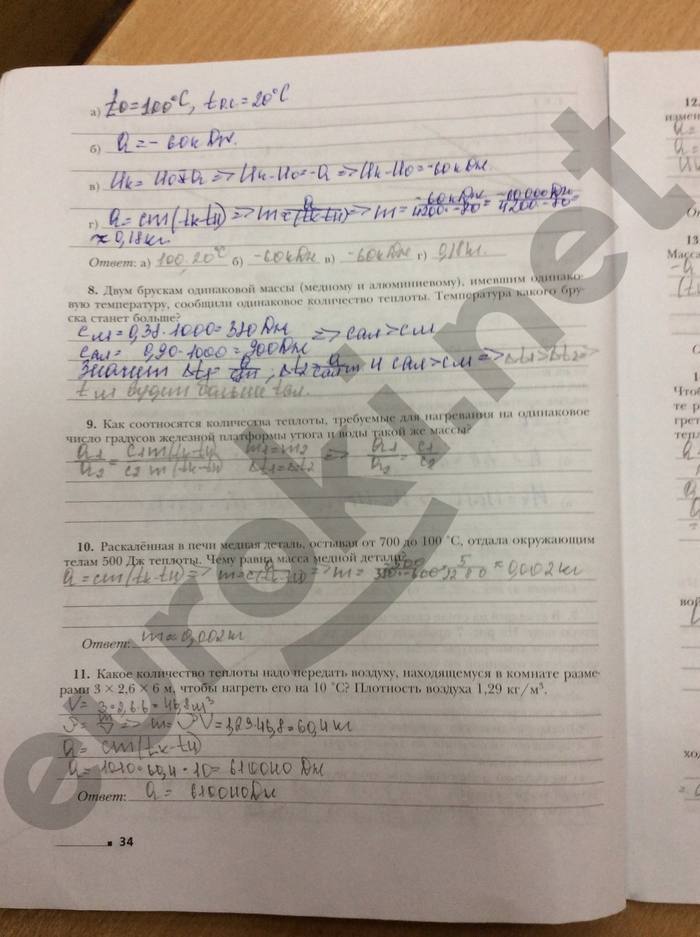 а) tо = 100°C, tо.с. = 20°C
б) Q = – 60кДж.
в) Uк = Uо + Q => Uк – Uо = –Q => Uк – Uо = –60кДж
г) Q = cm(tк – tн) => m = Q/c(tк–tн) => m = –60кДж/4200·–80 = –60000Дж/4200·–80 =
≈ 0,18кг
Ответ: а) 100, 20°C б) –60кДж в) –60кДж г) 0,18кг.
8. Двум брускам одинаковой массы (медному и алюминиевому), имевшим одинако-
вую температуру, сообщили одинаковое количество теплоты. Температура какого бру-
ска станет больше?
См = 0,38·1000 = 380Дж => Сал > См
Сал = 0,90·1000 = 900Дж
Значит Δt1 = Q/cm, Δt2 = и Сал > См => Δt1 > Δt2 =>
t м будет больше tал.
9. Как соотносятся количества теплоты, требуемые для нагревания на одинаковое
число градусов железной платформы утюга и воды такой же массы?
Q1/Q2 = c1m(tк–tн)/c2m(tк–tн) m1=m2 Δt1=Δt2 => Q1/Q2 = c1/c2
10. Раскалённая в печи медная деталь, остывая от 700 до 100 °С, отдала окружающим
телам 500 Дж теплоты. Чему равна масса медной детали?
Q = cm(tк–tн) => m = Q/c(tк–tн) => m = –500/380·–600 = 5/2280 ≈ 0,002кг
Ответ: m ≈ 0,002кг
11. Какое количество теплоты надо передать воздуху, находящемуся в комнате разме-
рами 3 × 2,6 × 6 м, чтобы нагреть его на 10 °С? Плотность воздуха 1,29 кг/м³.
V = 3·2,6·6 = 46,8м³
ρ = m/V => m = ρV = 1,29·46,8 = 60,4кг
Q = cm(tк–tн)
Q = 1010·60,4·10 = 610040 Дж
Ответ: Q = 610040Дж
34
euroki.net
12.
измен
Q =
Q =
От
13.
Масса
–Q
Чтоб
те р
грет
тепл
вой
ход